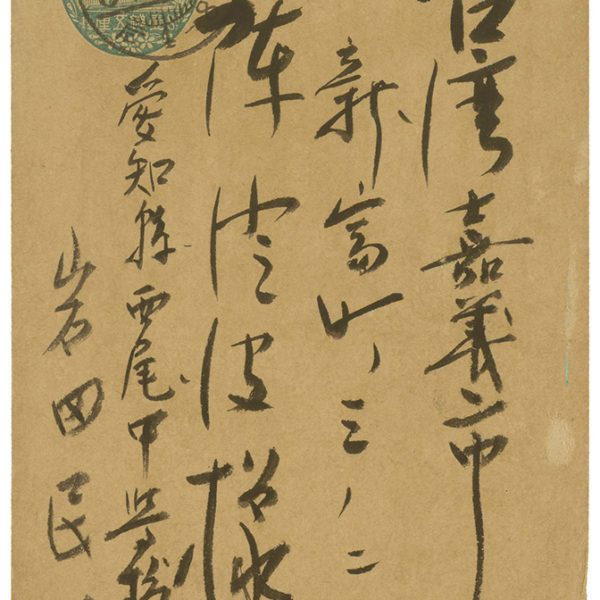 台湾嘉義市
新富町三ノ二
陳澄波様
愛知縣西尾中學校
岩田民